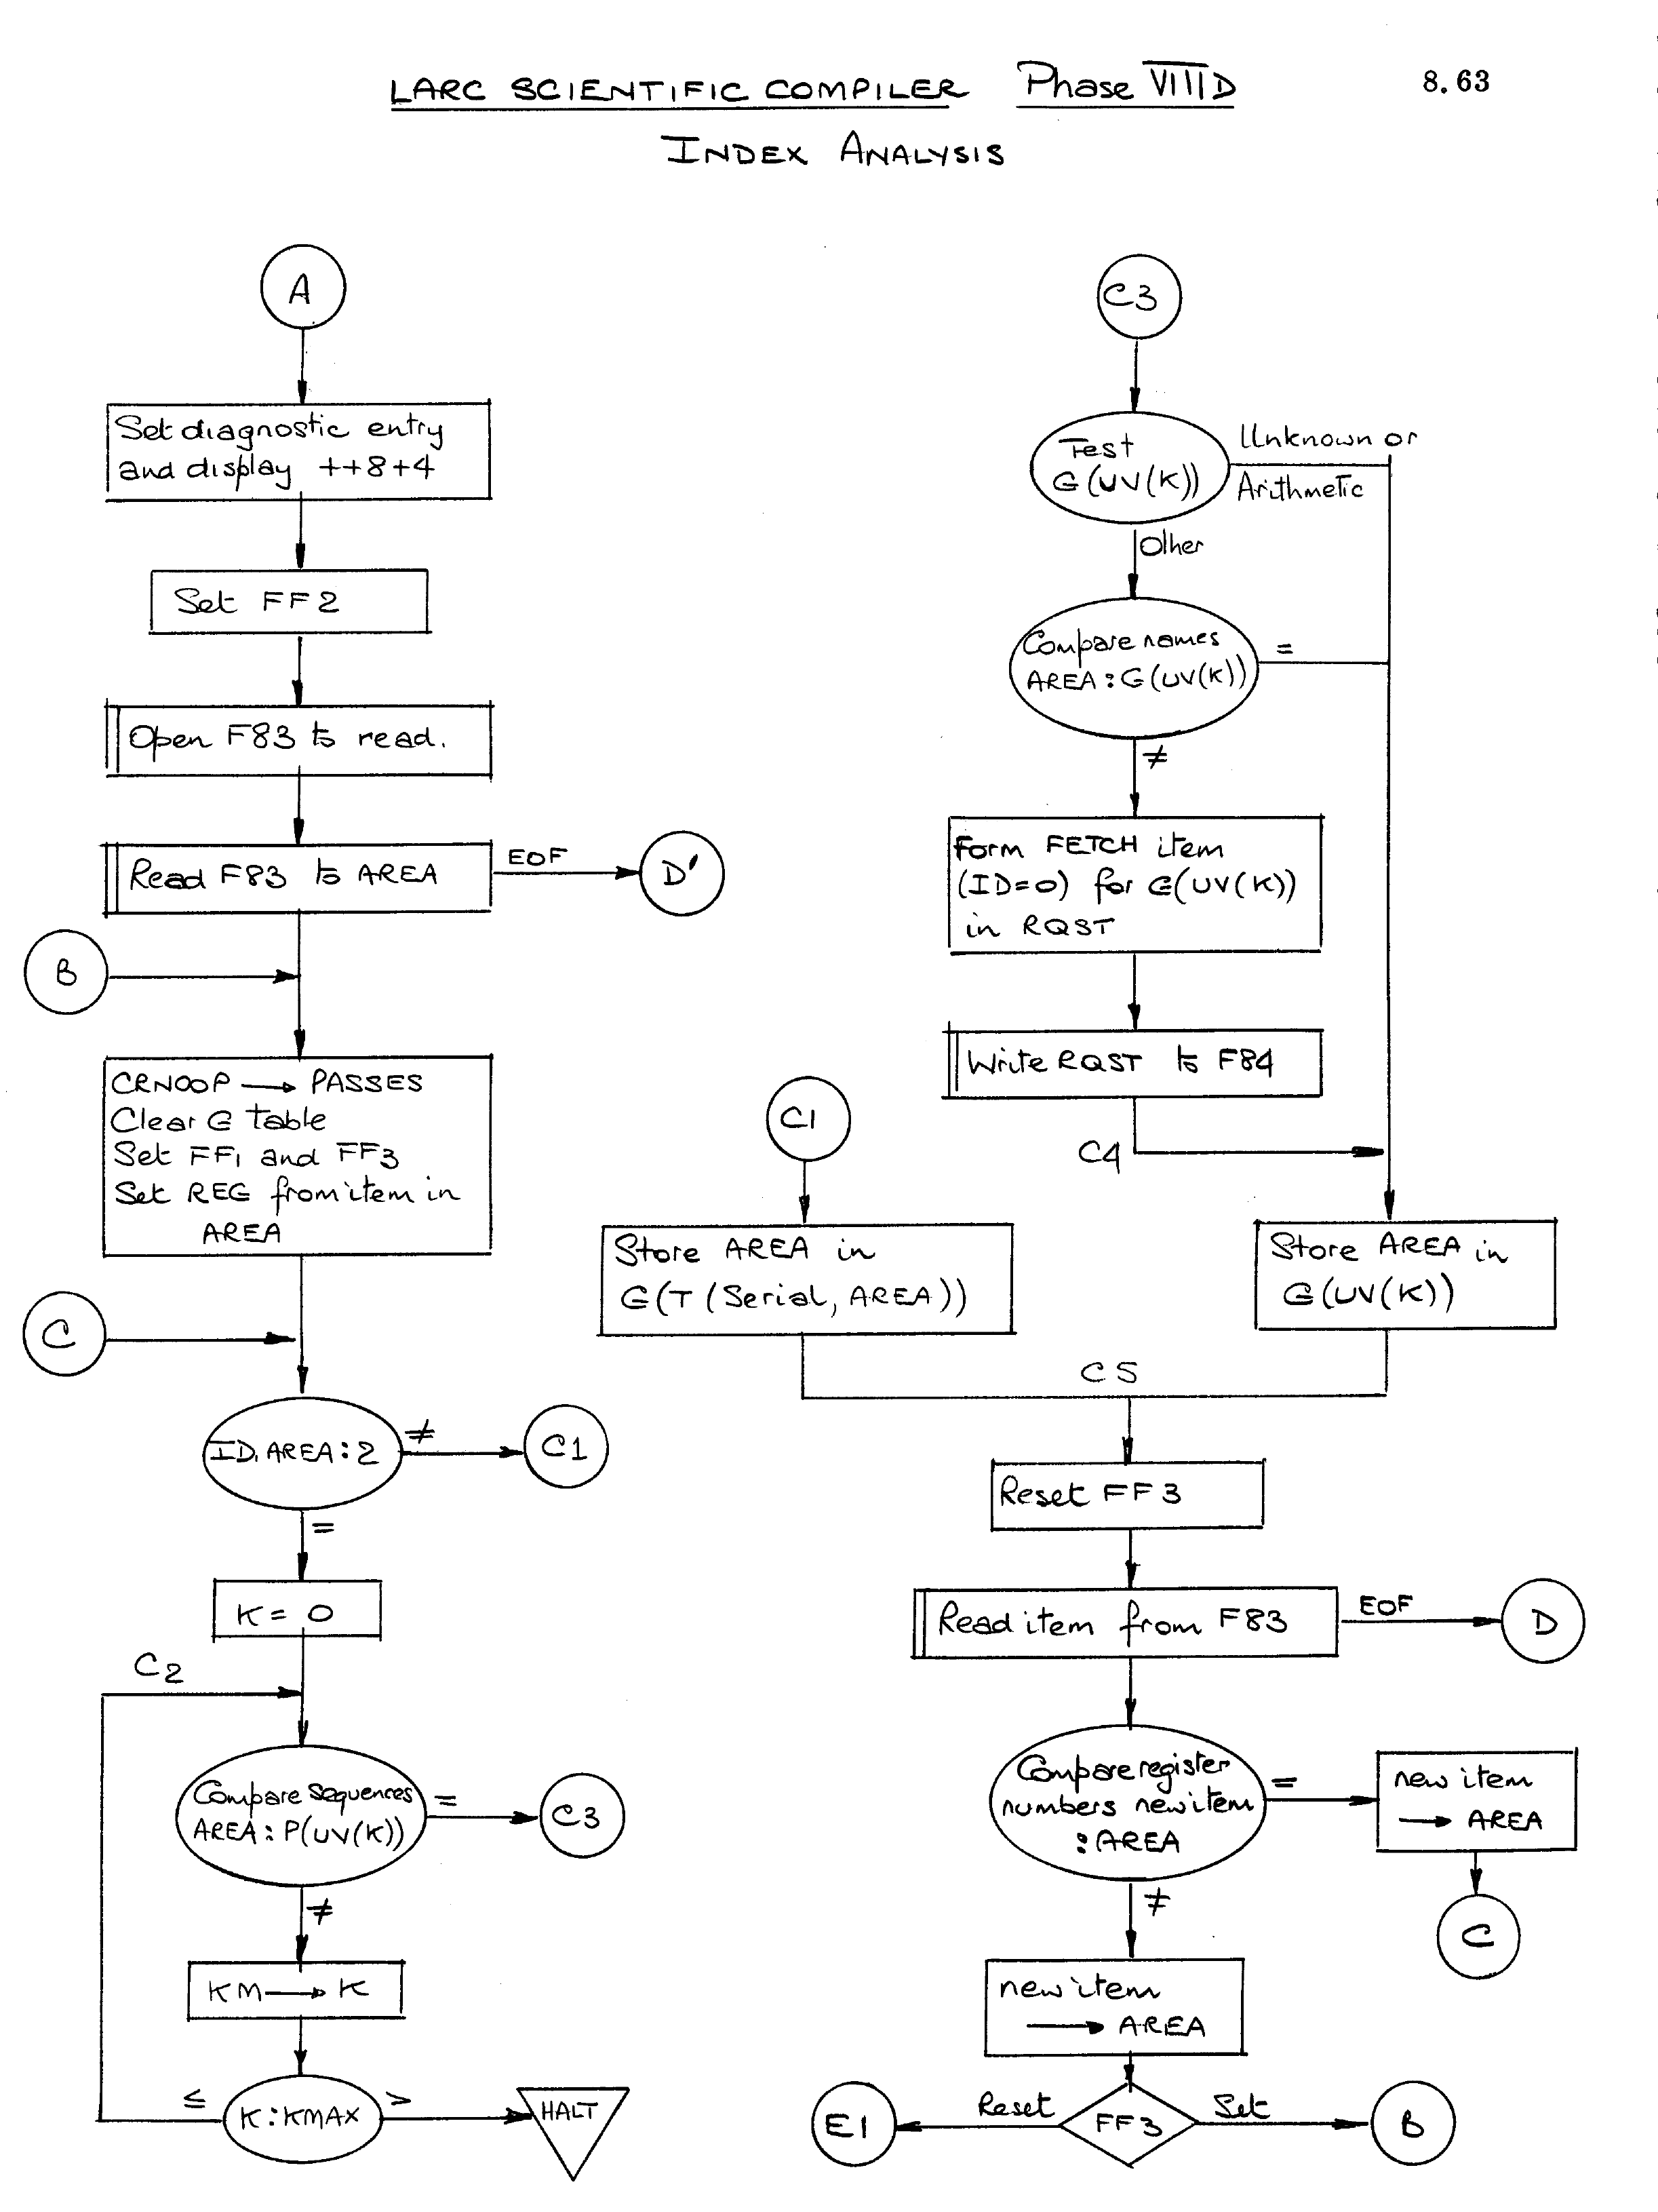 LARC SCIENTIFIC COMPILER Phase VIII D
8.63
INDEX ANALYSIS
A
Set diagnostic entry
and display ++8+4
Set FF2
Open F83 to read.
Read F83 to AREA
EOF
D'
B
CRNOOP → PASSES
Clear G table
Set FF1 and FF3
Set REG from item in
AREA
C
ID.AREA:2
≠
C1
=
K = 0
C2
Compare sequences
AREA: P(UV(K))
=
C3
≠
KM → K
≤
K:KMAX
>
HALT
C3
Test
G(UV(K))
Unknown or
Arithmetic
Other
Compare names
AREA:G(UV(K))
=
≠
Form FETCH item
(ID=0) for G(UV(K))
in RQST
Write RQST to F84
C4
C1
Store AREA in
G(T(Serial, AREA))
Store AREA in
G(UV(K))
C5
Reset FF3
Read item from F83
EOF
D
Compare register
numbers new item
:AREA
=
new item
→ AREA
C
≠
new item
→ AREA
Reset
FF3
Set
E1
B